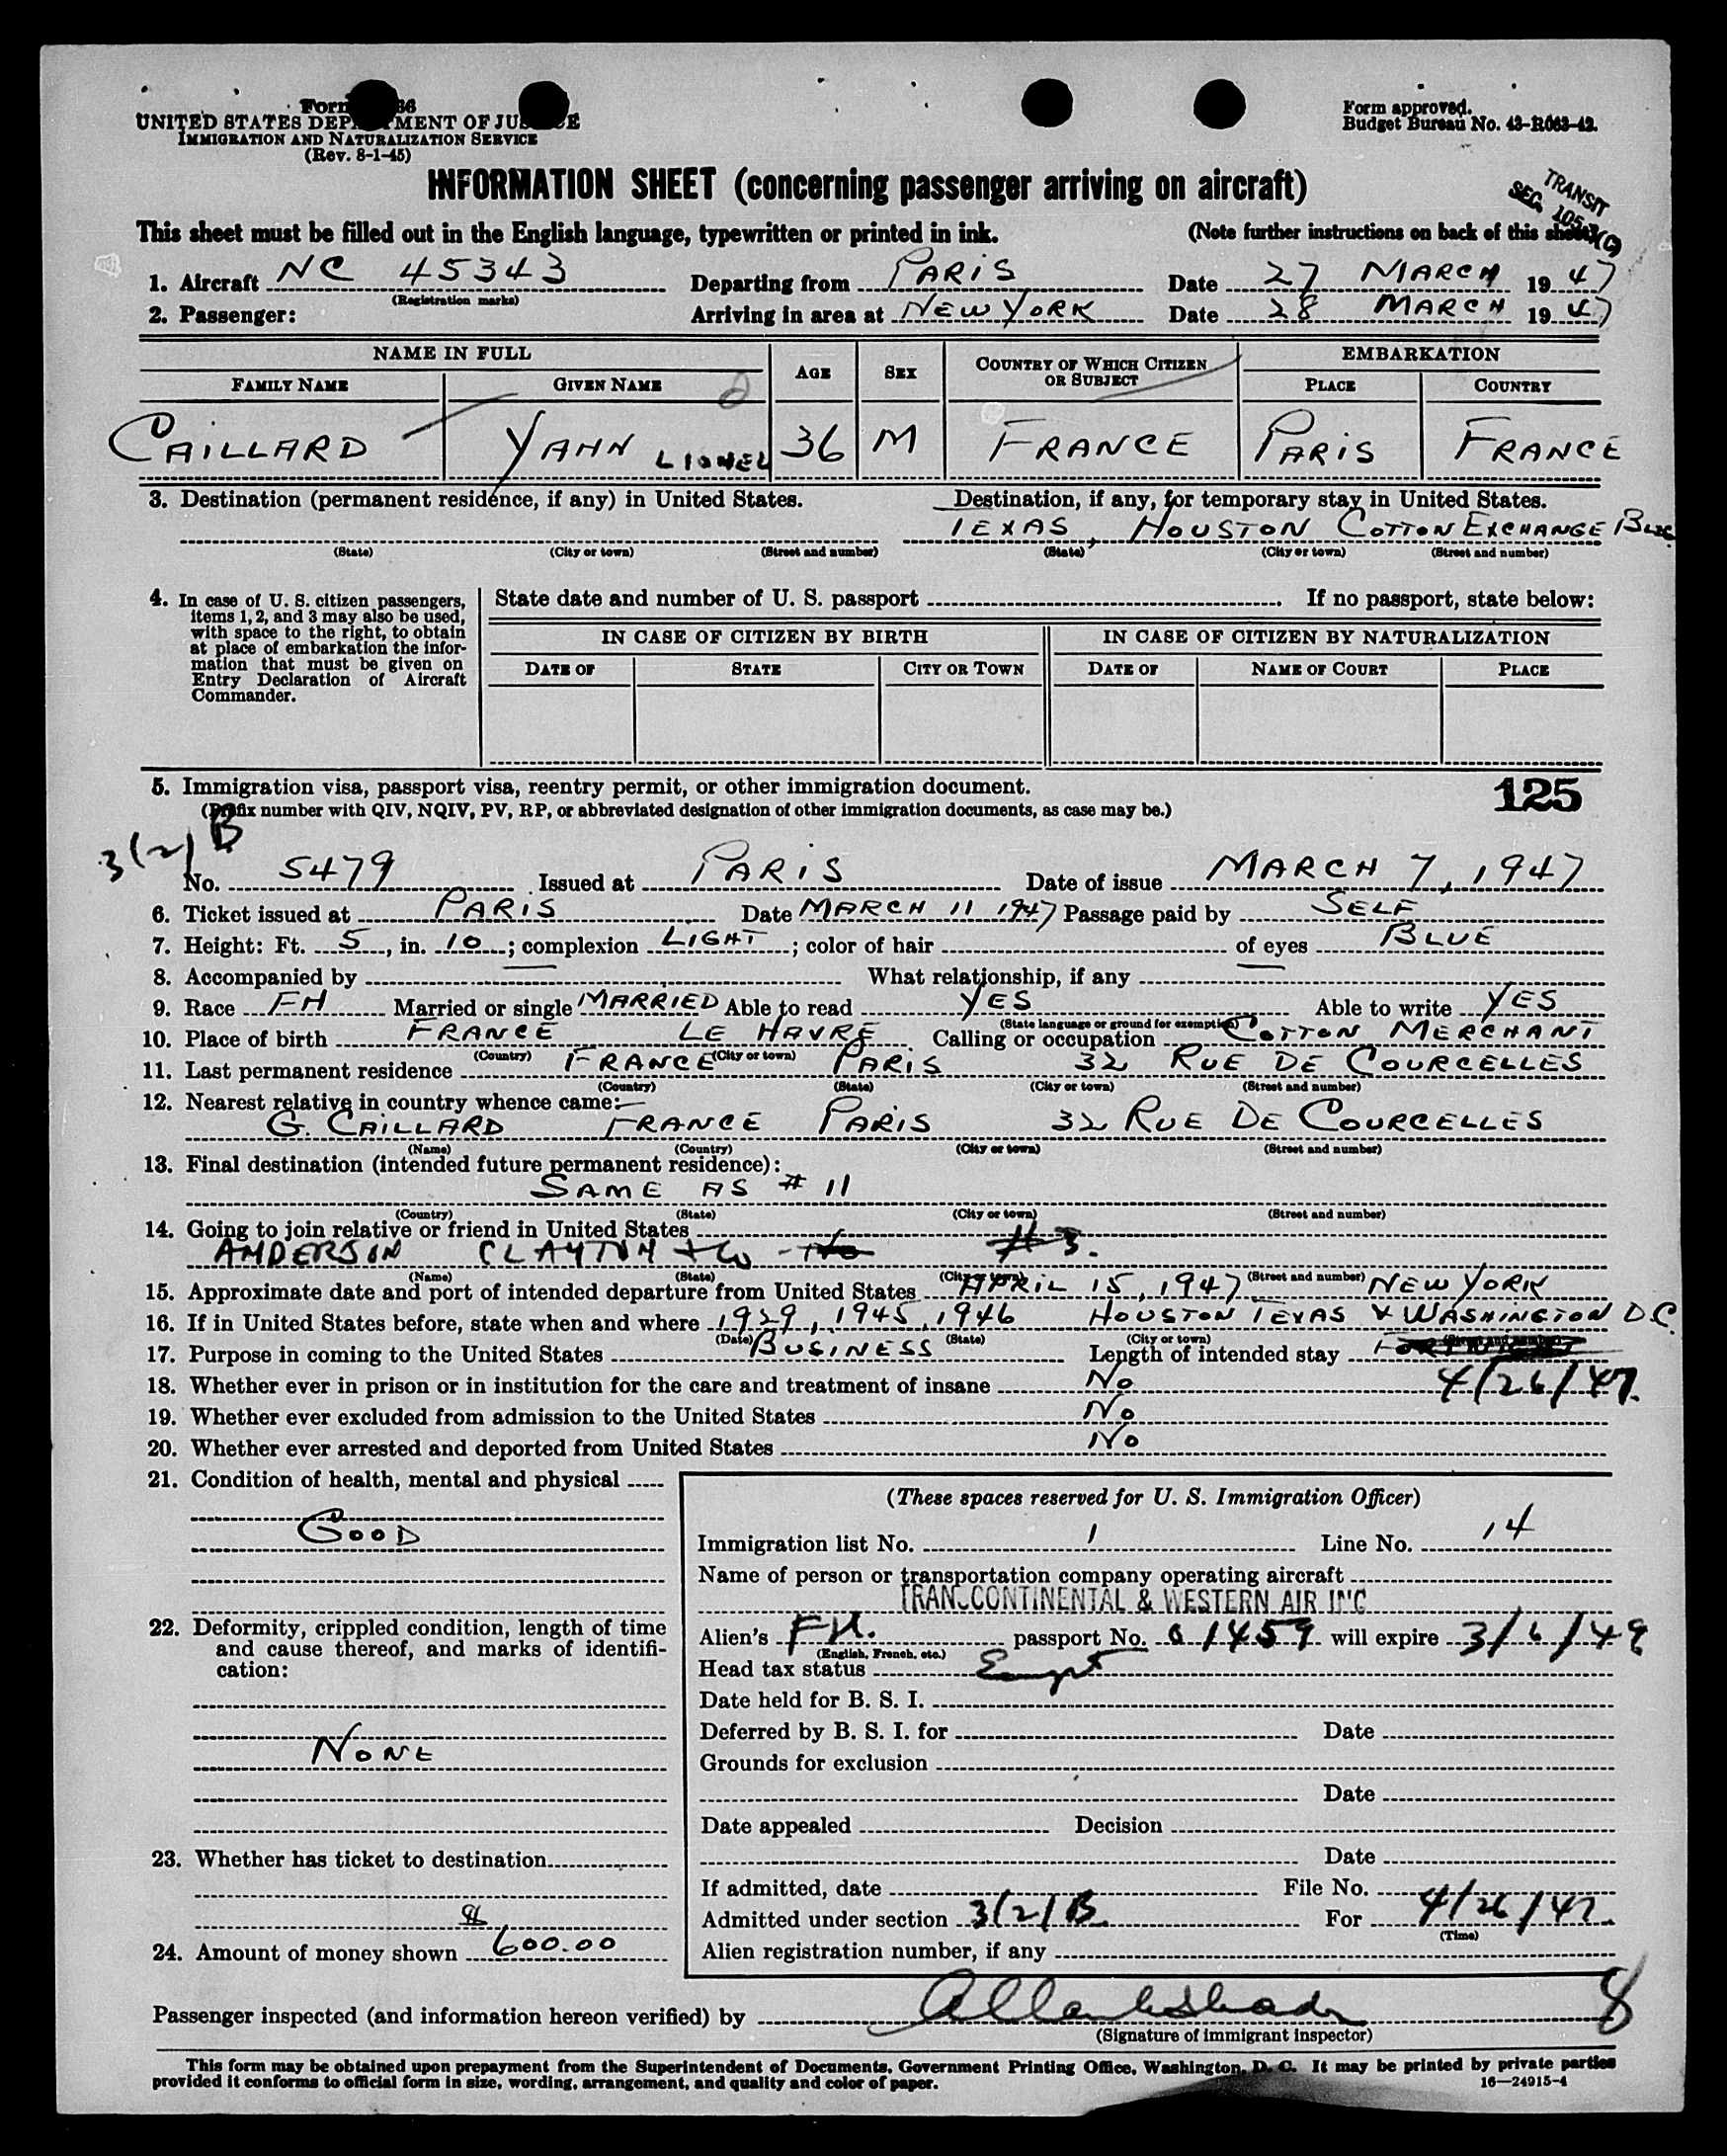 Form 66
Form approved.
UNITED STATES DEPARTMENT OF JUSTICE
Budget Bureau No. 43-R063-42.
IMMIGRATION AND NATURALIZATION SERVICE
(Rev. 8-1-45)
INFORMATION SHEET (concerning passenger arriving on aircraft)
TRANSIT
SEC. 105.3(C)
This sheet must be filled out in the English language, typewritten or printed in ink. (Note further instructions on back of this sheet)
1. Aircraft NC 45343 Departing from PARIS Date 27 MARCH 1947
(Registration marks)
2. Passenger: Arriving in area at NEW YORK Date 28 MARCH 1947
NAME IN FULL AGE SEX COUNTRY OF WHICH CITIZEN OR SUBJECT EMBARKATION
FAMILY NAME GIVEN NAME PLACE COUNTRY
CAILLARD YANN LIONEL 36 M FRANCE PARIS FRANCE
3. Destination (permanent residence, if any) in United States. Destination, if any, for temporary stay in United States.
TEXAS, HOUSTON COTTON EXCHANGE BLDG
(State) (City or town) (Street and number) (State) (City or town) (Street and number)
4. In case of U. S. citizen passengers, items 1, 2, and 3 may also be used, with space to the right, to obtain at place of embarkation the information that must be given on Entry Declaration of Aircraft Commander.
State date and number of U. S. passport If no passport, state below:
IN CASE OF CITIZEN BY BIRTH IN CASE OF CITIZEN BY NATURALIZATION
DATE OF STATE CITY OR TOWN DATE OF NAME OF COURT PLACE
5. Immigration visa, passport visa, reentry permit, or other immigration document. 125
(Prefix number with QIV, NQIV, PV, RP, or abbreviated designation of other immigration documents, as case may be.)
3(2)B
No. 5479 Issued at PARIS Date of issue MARCH 7, 1947
6. Ticket issued at PARIS Date MARCH 11 1947 Passage paid by SELF
7. Height: Ft. 5, in. 10; complexion LIGHT; color of hair of eyes BLUE
8. Accompanied by — What relationship, if any —
9. Race FH Married or single MARRIED Able to read YES Able to write YES
(State language or ground for exemption)
10. Place of birth FRANCE LE HAVRE Calling or occupation COTTON MERCHANT
(Country) (City or town)
11. Last permanent residence FRANCE PARIS 32 RUE DE COURCELLES
(Country) (State) (City or town) (Street and number)
12. Nearest relative in country whence came:
G. CAILLARD FRANCE PARIS 32 RUE DE COURCELLES
(Name) (Country) (City or town) (Street and number)
13. Final destination (intended future permanent residence):
SAME AS # 11
(Country) (State) (City or town) (Street and number)
14. Going to join relative or friend in United States
ANDERSON CLAYTON + Co # 3.
(Name) (State) (City or town) (Street and number)
15. Approximate date and port of intended departure from United States APRIL 15, 1947 NEW YORK
16. If in United States before, state when and where 1929, 1945, 1946 HOUSTON TEXAS & WASHINGTON D.C.
(Date) (State) (City or town) (Street and number)
17. Purpose in coming to the United States BUSINESS Length of intended stay
18. Whether ever in prison or in institution for the care and treatment of insane NO 4/26/47.
19. Whether ever excluded from admission to the United States NO
20. Whether ever arrested and deported from United States NO
21. Condition of health, mental and physical
GOOD
22. Deformity, crippled condition, length of time and cause thereof, and marks of identification:
NONE
23. Whether has ticket to destination
24. Amount of money shown $ 600.00
(These spaces reserved for U. S. Immigration Officer)
Immigration list No. 1 Line No. 14
Name of person or transportation company operating aircraft
TRANSCONTINENTAL & WESTERN AIR INC
Alien's FH. passport No. 01459 will expire 3/6/49
(English, French, etc.)
Head tax status Exempt
Date held for B. S. I.
Deferred by B. S. I. for Date
Grounds for exclusion
Date
Date appealed Decision
Date
If admitted, date File No.
Admitted under section 3(2)B For 4/26/47.
(Time)
Alien registration number, if any
Passenger inspected (and information hereon verified) by 8
(Signature of immigrant inspector)
This form may be obtained upon prepayment from the Superintendent of Documents, Government Printing Office, Washington, D. C. It may be printed by private parties
provided it conforms to official form in size, wording, arrangement, and quality and color of paper. 16—24915-4